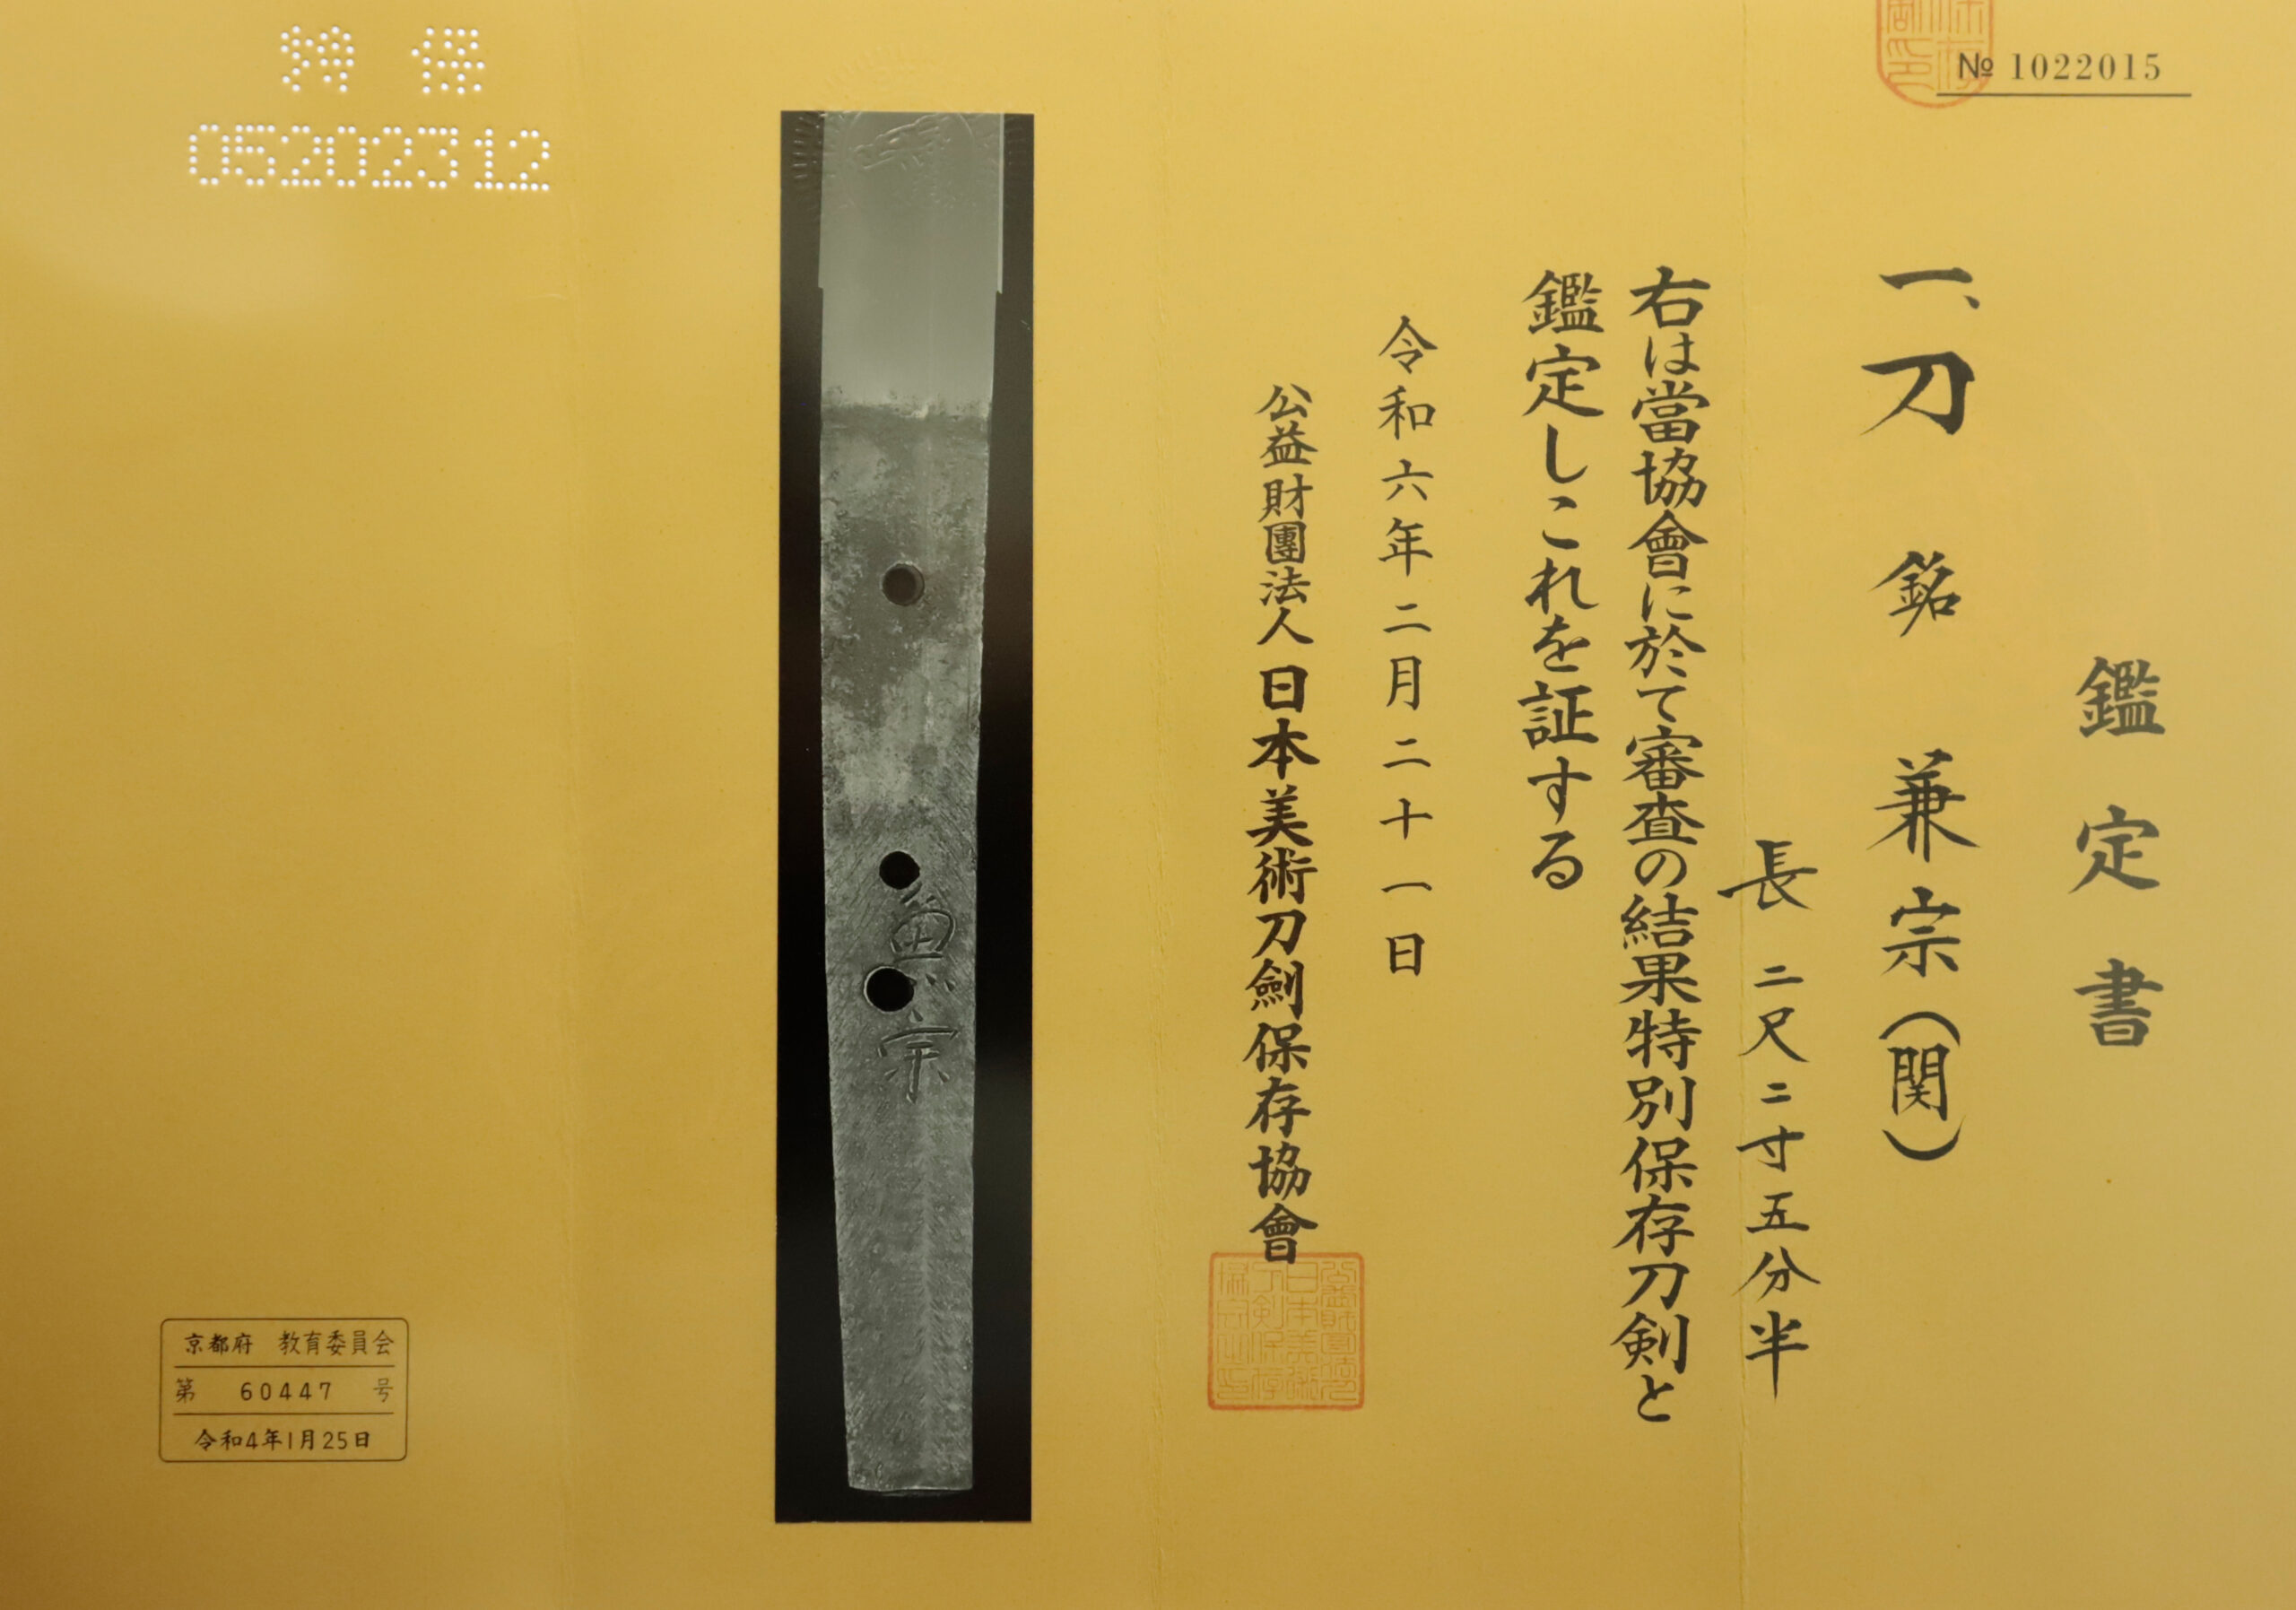 № 1022015
鑑定書
一、刀 銘 兼宗(関)
長 二尺二寸五分半
右は當協會に於て審査の結果特別保存刀剣と
鑑定しこれを証する
令和六年二月二十一日
公益財團法人 日本美術刀劍保存協會
兼宗
特 保
05202312
京都府 教育委員会
第 60447 号
令和4年1月25日